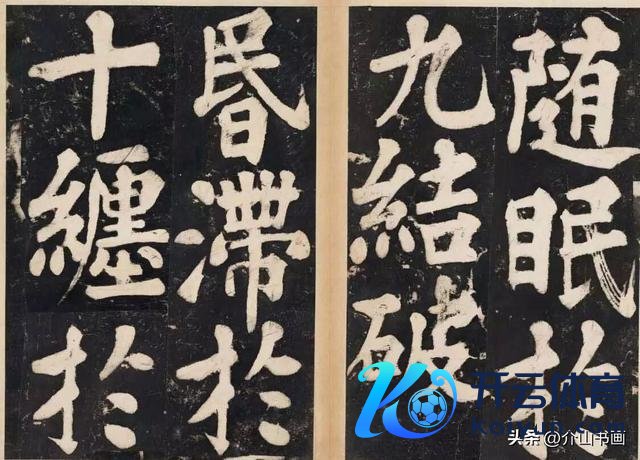 随眠於
九結破
昬滯於
十纏於
开云体育
头条 @介山书画